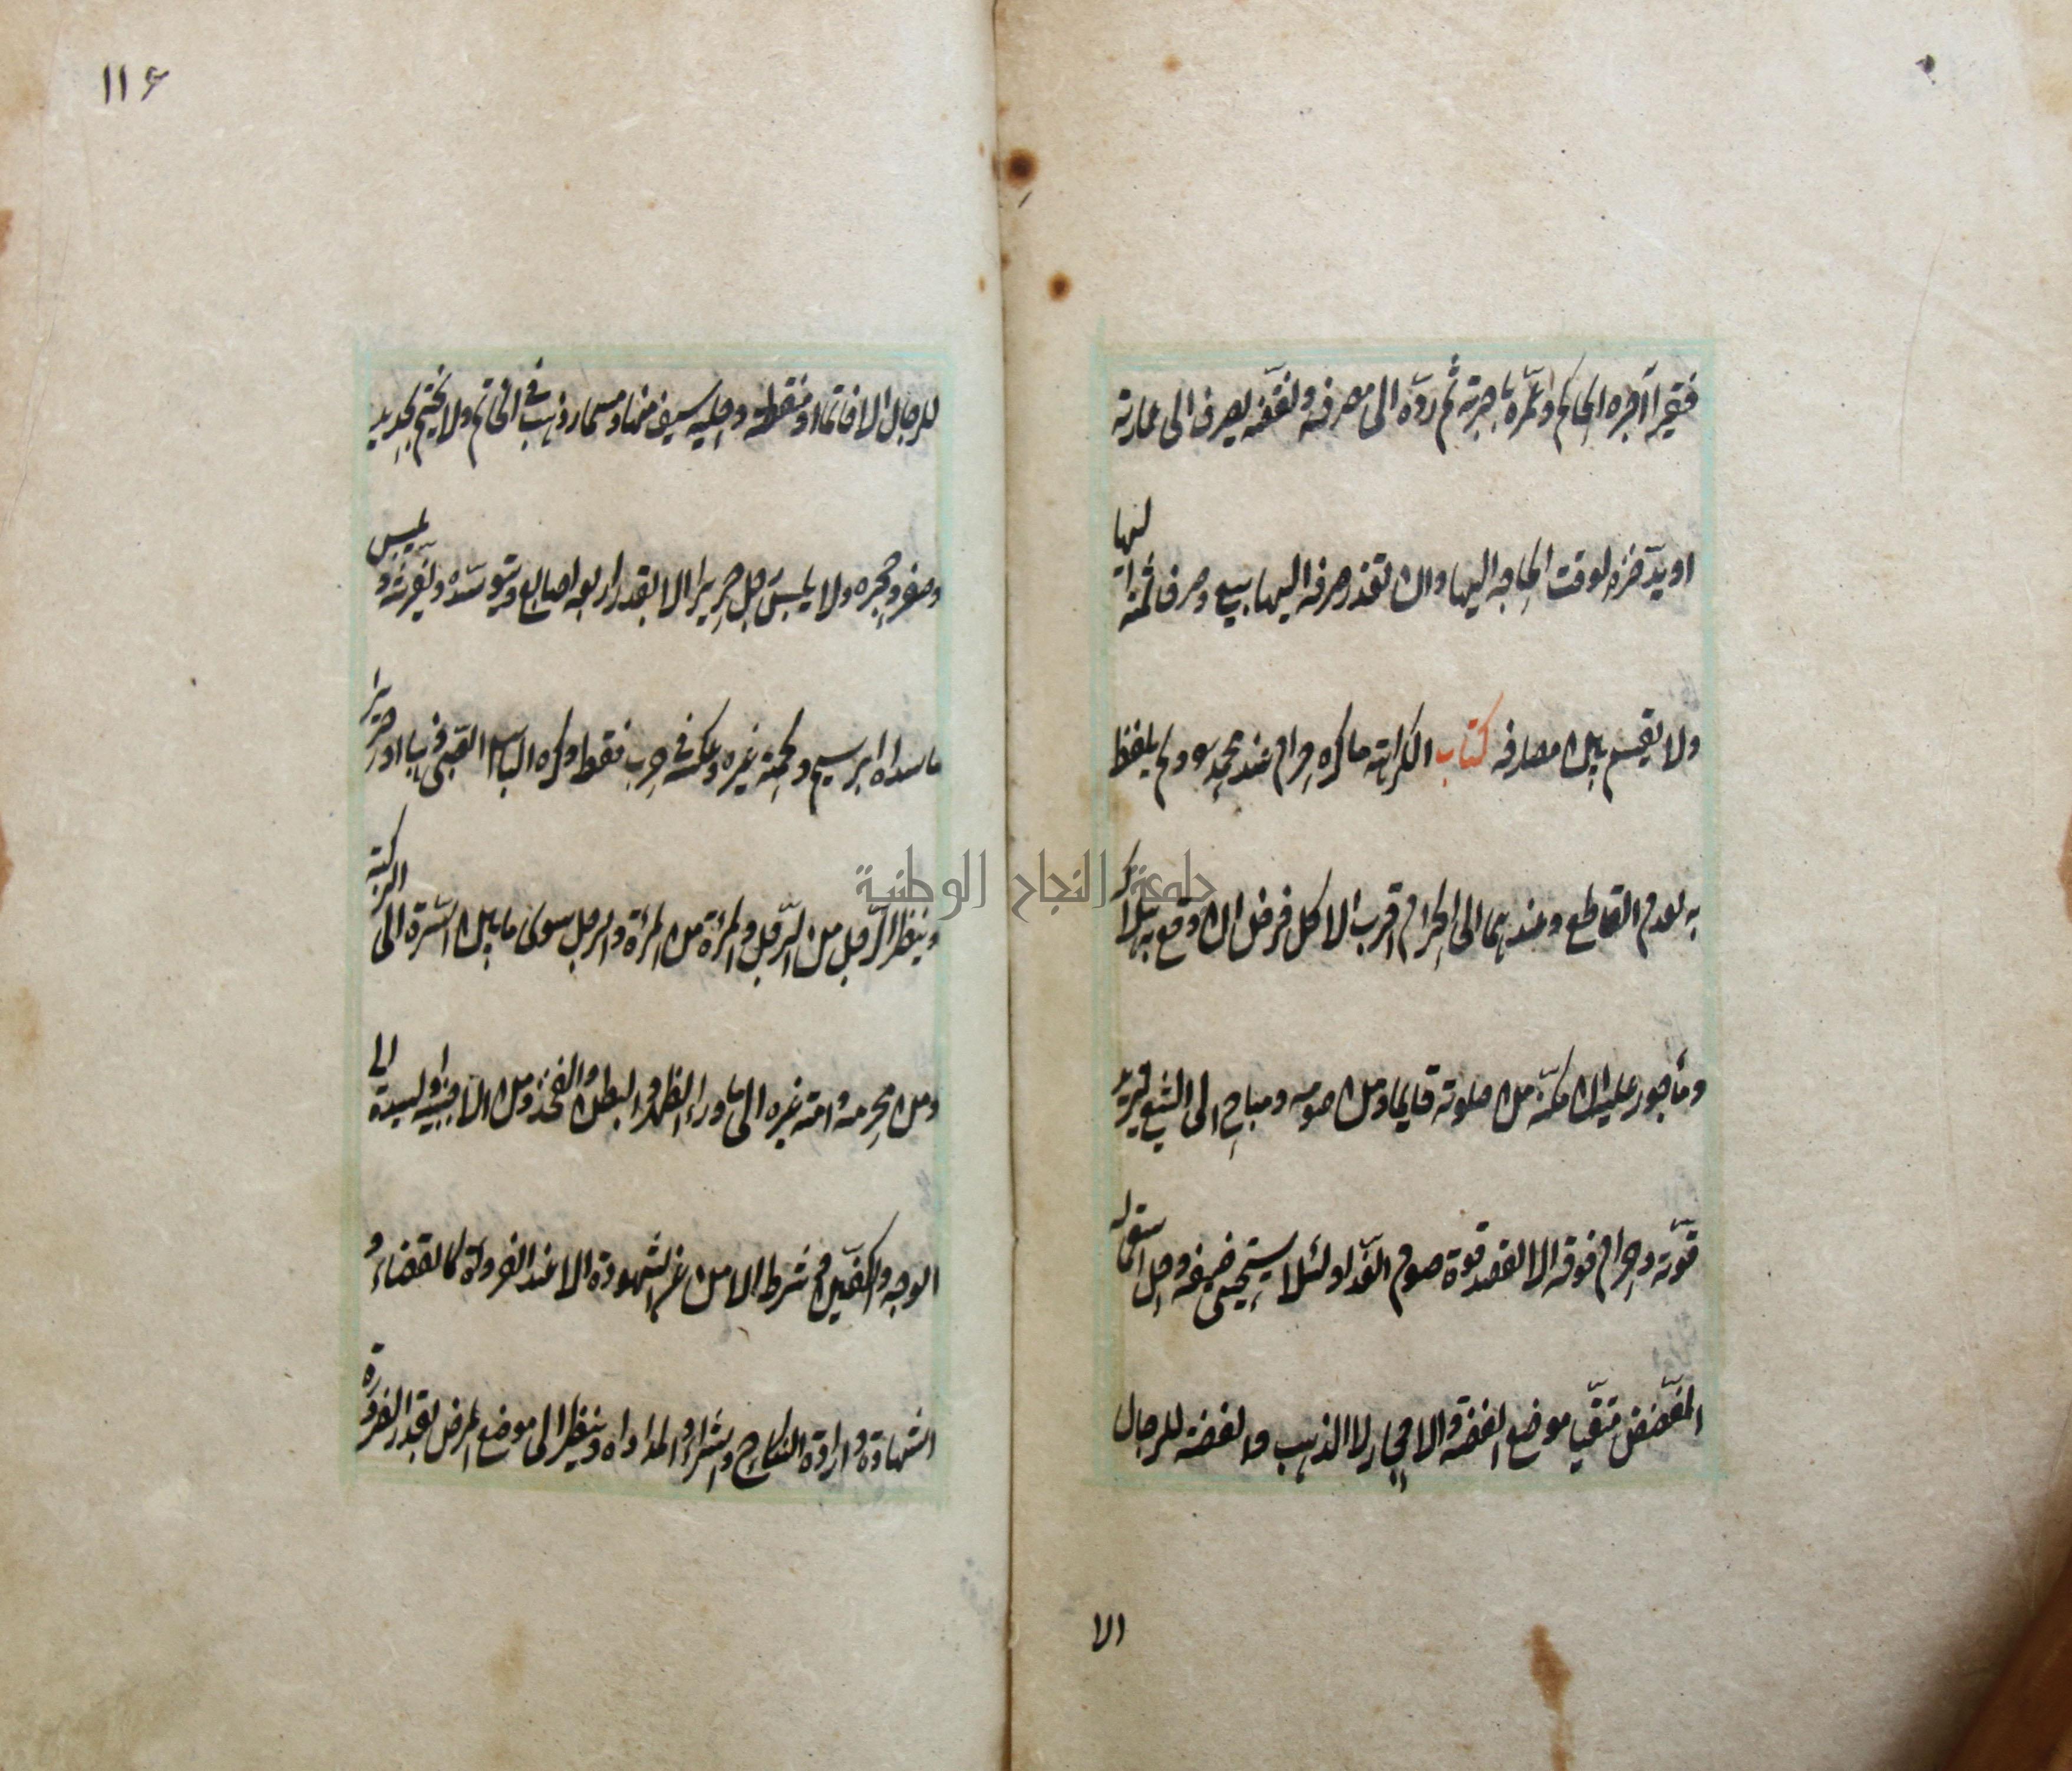 فقيرا آجره الحاكم وعمّره باجرته ثم ردّه الى مصرفه ونقضه يصرف الى عمارته
او يدّخره لوقت الحاجة اليها وان تعذر صرفه اليها بيع وصرف ثمنه اليها
ولا يقسم بين مصارفه كتاب الكراهة ما كره حرام عند محمد ولم يلفظ
به لعدم القاطع وعندهما الى الحرام اقرب الاكل فرض ان دفع به هلاكه
ومأجور عليه ان مكنه من صلوته قايما ومن صومه ومباح الى الشبع ليزيد
قوّته وحرام فوقه الا لقصد قوة صوم الغد او لئلا يستحيى ضيفه وحل استعماله
المفضض متقيا موضع الفضة والاحجار لا الذهب والفضة للرجال
الا
١١٤
للرجال الا خاتما او منطقة وحلية سيف منها ومسمار ذهب في الخاتم ولا يختم بحديد
وصفر وحجره ولا يلبس رجل حريرا الا بقدر اربعة اصابع ويتوسّده ويفرشه ويلبس
ما سداه ابريسم ولحمته غيره وعكسه في حرب فقط وكره الباس الصبى ذهبا او حريرا
وينظر الرّجل من الرّجل والمرأة من المرأة والرجل سوى ما بين السّرة الى الركبة
ومن محرمه وامة غيره الى ما وراء الظهر والبطن والفخذ ومن الاجنبية والسيدة الى
الوجه والكفين وشرط الامن عن الشهوة الا عند الضرورة كالقضاء و
الشهادة وارادة النكاح والشراء والمداواة وينظر الى موضع المرض بقدر الضرورة
جامعة النجاح الوطنية